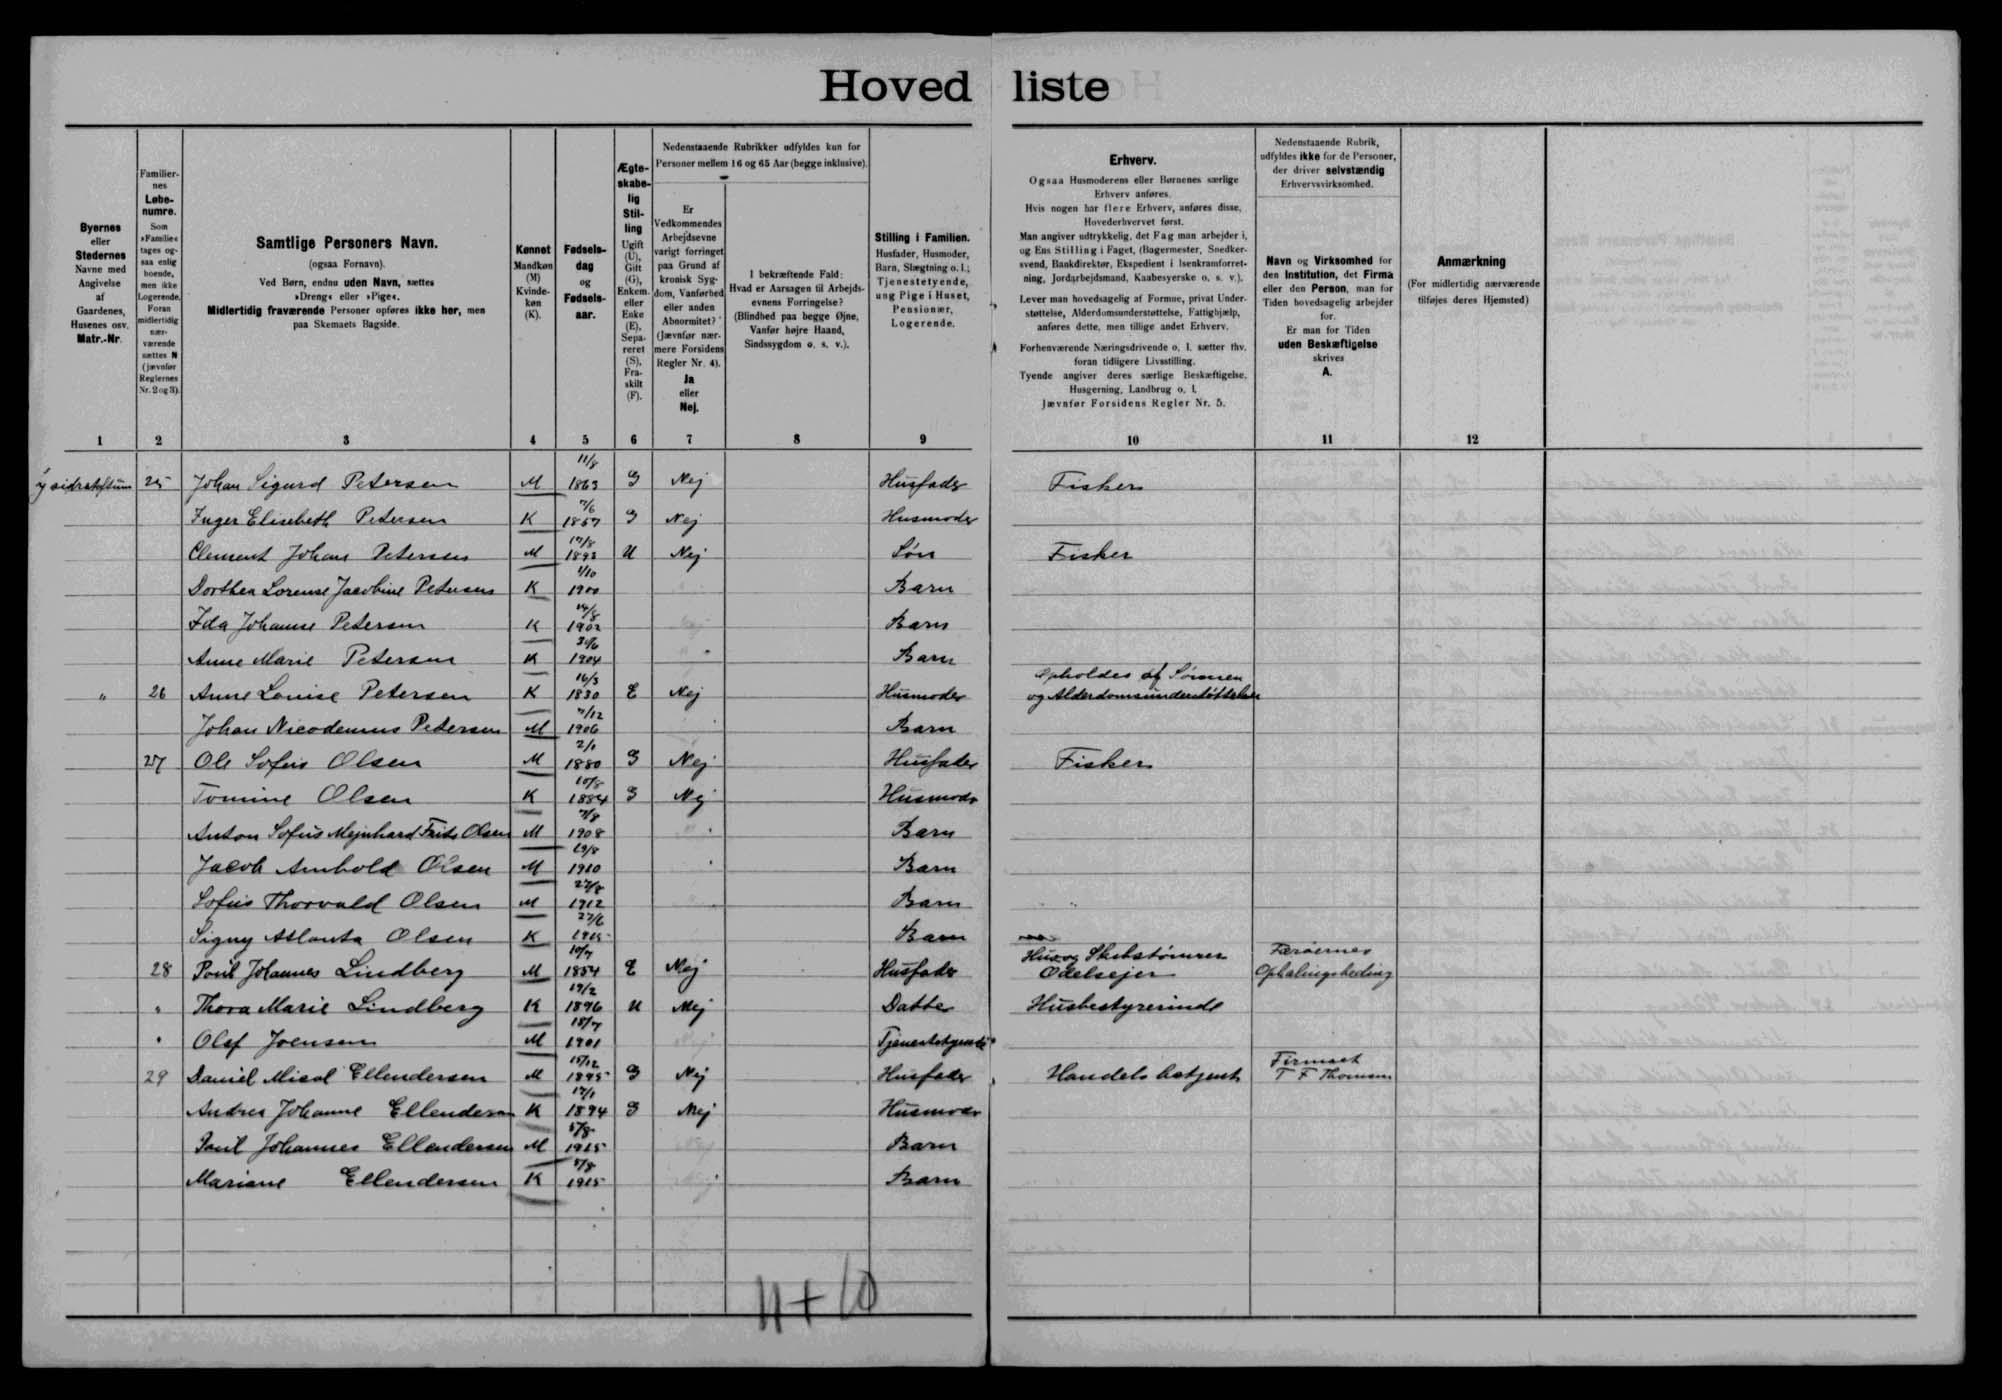 Hoved liste
Byernes eller Stedernes Navne med Angivelse af Gaardenes, Husenes osv. Matr.-Nr.
Familiernes Løbenumre. Som »Familie« tages ogsaa enlig boende, men ikke Logerende. Foran midlertidig nærværende sættes N (jævnfør Reglernes Nr. 2 og 3).
Samtlige Personers Navn.
(ogsaa Fornavn).
Ved Børn, endnu uden Navn, sættes
»Dreng« eller »Pige«.
Midlertidig fraværende Personer opføres ikke her, men
paa Skemaets Bagside.
Kønnet Mandkøn (M) Kvindekøn (K).
Fødselsdag og Fødselsaar.
Ægteskabelig Stilling Ugift (U), Gift (G), Enkem. eller Enke (E), Separeret (S), Fraskilt (F).
Nedenstaaende Rubrikker udfyldes kun for
Personer mellem 16 og 65 Aar (begge inklusive).
Er Vedkommendes Arbejdsevne varigt forringet paa Grund af kronisk Sygdom, Vanførhed eller anden Abnormitet? (Jævnfør nærmere Forsidens Regler Nr. 4). Ja eller Nej.
I bekræftende Fald: Hvad er Aarsagen til Arbejdsevnens Forringelse? (Blindhed paa begge Øjne, Vanfør højre Haand, Sindssygdom o. s. v.).
Stilling i Familien. Husfader, Husmoder, Barn, Slægtning o. l.; Tjenestetyende, ung Pige i Huset, Pensionær, Logerende.
Erhverv.
Ogsaa Husmoderens eller Børnenes særlige
Erhverv anføres.
Hvis nogen har flere Erhverv, anføres disse,
Hovederhvervet først.
Man angiver udtrykkelig, det Fag man arbejder i,
og Ens Stilling i Faget, (Bagermester, Snedker-
svend, Bankdirektør, Ekspedient i Isenkramforret-
ning, Jordarbejdsmand, Kaabesyerske o. s. v.).
Lever man hovedsagelig af Formue, privat Under-
støttelse, Alderdomsunderstøttelse, Fattighjælp,
anføres dette, men tillige andet Erhverv.
Forhenværende Næringsdrivende o. l. sætter thv.
foran tidligere Livsstilling.
Tyende angiver deres særlige Beskæftigelse,
Husgerning, Landbrug o. l.
Jævnfør Forsidens Regler Nr. 5.
Nedenstaaende Rubrik,
udfyldes ikke for de Personer,
der driver selvstændig
Erhvervsvirksomhed.
Navn og Virksomhed for
den Institution, det Firma
eller den Person, man for
Tiden hovedsagelig arbejder
for.
Er man for Tiden
uden Beskæftigelse
skrives
A.
Anmærkning
(For midlertidig nærværende
tilføjes deres Hjemsted)
1 2 3 4 5 6 7 8 9 10 11 12
25 Johan Sigurd Petersen M 11/8 1863 G Nej Husfader Fisker
Inger Elisebeth Petersen K 7/6 1857 G Nej Husmoder
Clement Johan Petersen M 1893 U Nej Søn Fisker
Dorthea Lorense Jacobine Petersen K 1/10 1900 Barn
Ida Johanne Petersen K 14/8 1902 Barn
Anne Marie Petersen K 1904 Barn
" 26 Anne Louise Petersen K 16/3 1830 E Nej Husmoder Opholdes af Sønnen
og Alderdomsunderstøttelsen
Johan Nicodemus Petersen M 1906 Barn
27 Ole Sofus Olsen M 2/1 1880 G Nej Husfader Fisker
Tomine Olsen K 10/8 1884 G Nej Husmoder
Anton Sofus Mejnhard Frits Olsen M 1908 Barn
Jacob Arnbold Olsen M 29/8 1910 Barn
Sofus Thorvald Olsen M 27/8 1912 Barn
Signy Atlanta Olsen K 27/6 1915 Barn
28 Poul Johannes Lindberg M 10/7 1854 E Nej Husfader Hus og Skibstømrer
Odelsejer Færøernes
Ophalingsbeding
" Thora Marie Lindberg K 19/2 1896 U Nej Datter Husbestyrerinde
" Olaf Joensen M 18/7 1901 Tjenestetyende
29 Daniel Misal Ellendersen M 15/12 1895 G Nej Husfader Handelsbetjent Firmaet
T F Thomsen
Andrea Johanne Ellendersen K 17/1 1894 G Nej Husmoder
Poul Johannes Ellendersen M 5/8 1915 Barn
Mariane Ellendersen K 5/8 1915 Barn
11 + 10